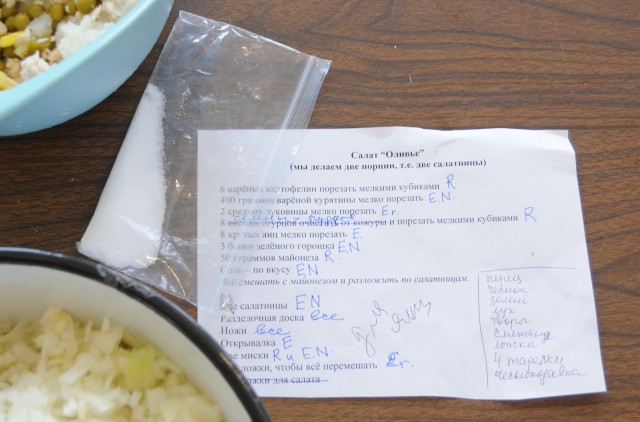 Салат "Оливье"
(мы делаем две порции, т.е. две салатницы)
6 варёных картофелин порезать мелкими кубиками R
400 граммов варёной курятины мелко порезать E.N.
2 средних луковицы мелко порезать Er.
8 свежих огурцов очистить от кожуры и порезать мелкими кубиками R
8 крутых яиц мелко порезать E.
3 банки зелёного горошка E.N.
граммов майонеза R.
Соль – по вкусу E.N.
Всё смешать с майонезом и разложить по салатницам.
Две салатницы EN
Разделочная доска все
Ножи все
Открывалка E
Две миски R и E.N.
Ложки, чтобы всё перемешать Er.
Ложки для салата
перец
чеснок
зелень
лук
творог
сметана
ложка
4 тарелки